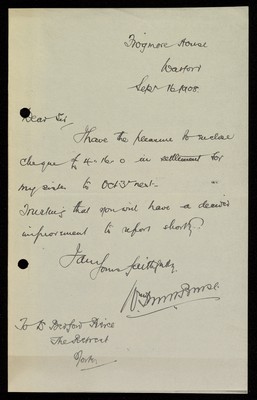 Frogmore House
Watford
Sept 16. 1908
Dear Sir,
I have the pleasure to enclose
cheque for 4 - 16 - 0 in settlement for
my sister to Oct 3rd next.
Trusting that you will have a decided
improvement to report shortly.
I am
Yours faithfully
To Dr Bedford Pierce
The Retreat
York.